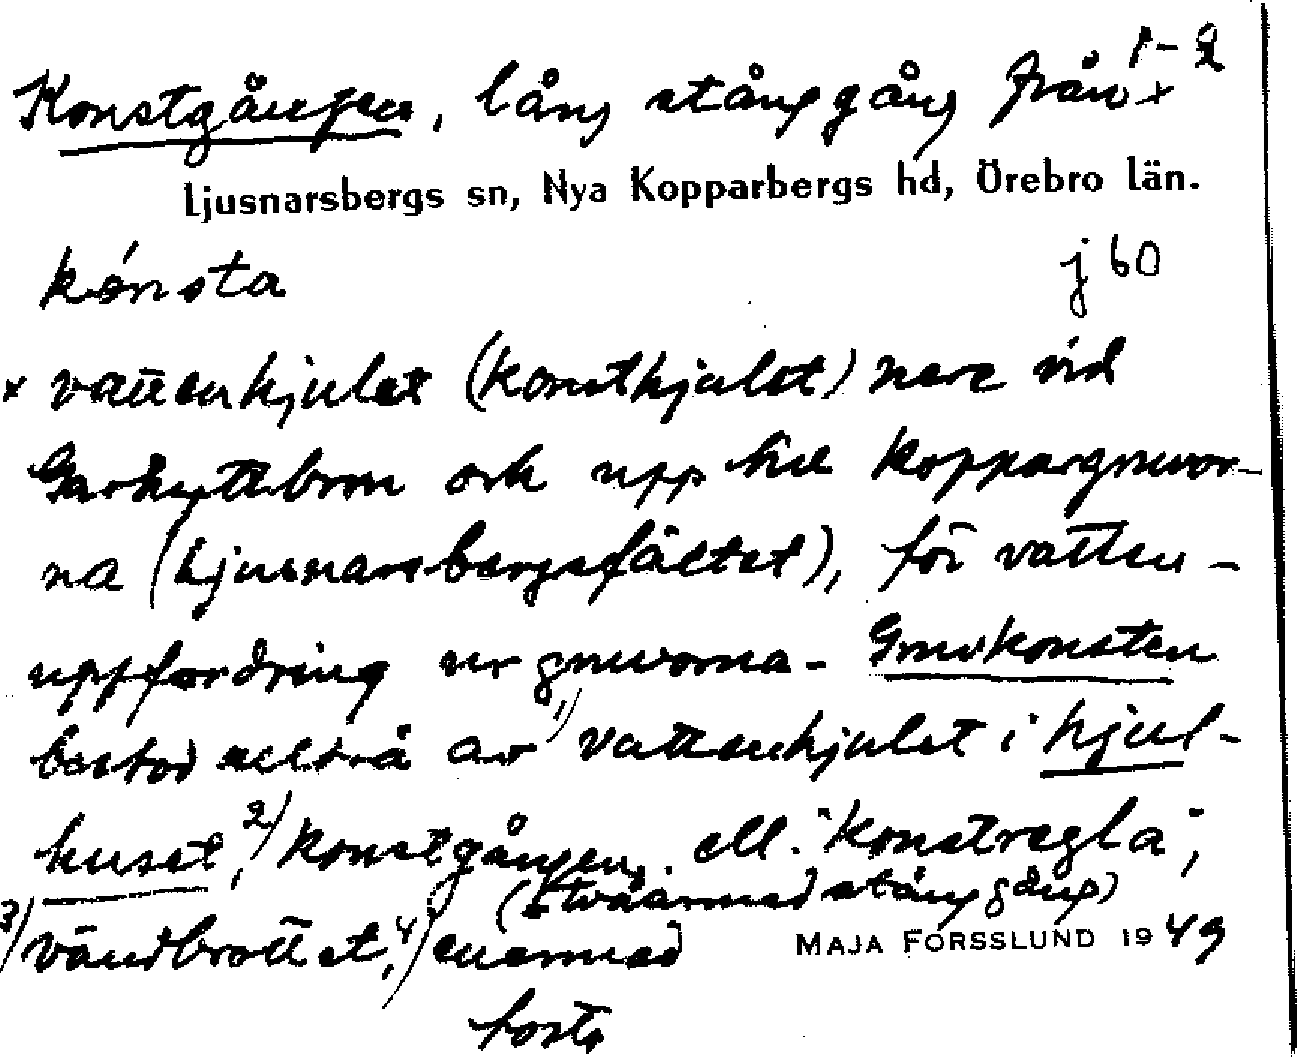 1-2
Konstgången, lång stånggång från x
Ljusnarsbergs sn, Nya Kopparbergs hd, Örebro län.
kónsta
j 60
x vattenhjulet (konsthjulet) nere vid
Garhyttebron och upp till koppargruvor-
na (Ljusnarsbergsfältet), för vatten-
uppfordring ur gruvorna - Gruvkonsten
bestod alltså av 1) vattenhjulet i hjul-
huset, 2) konstgången, ell. "konstregla",
(tvåarmad stånggång)
3) vändbrottet, 4) enarmad
MAJA FORSSLUND 1949
forts